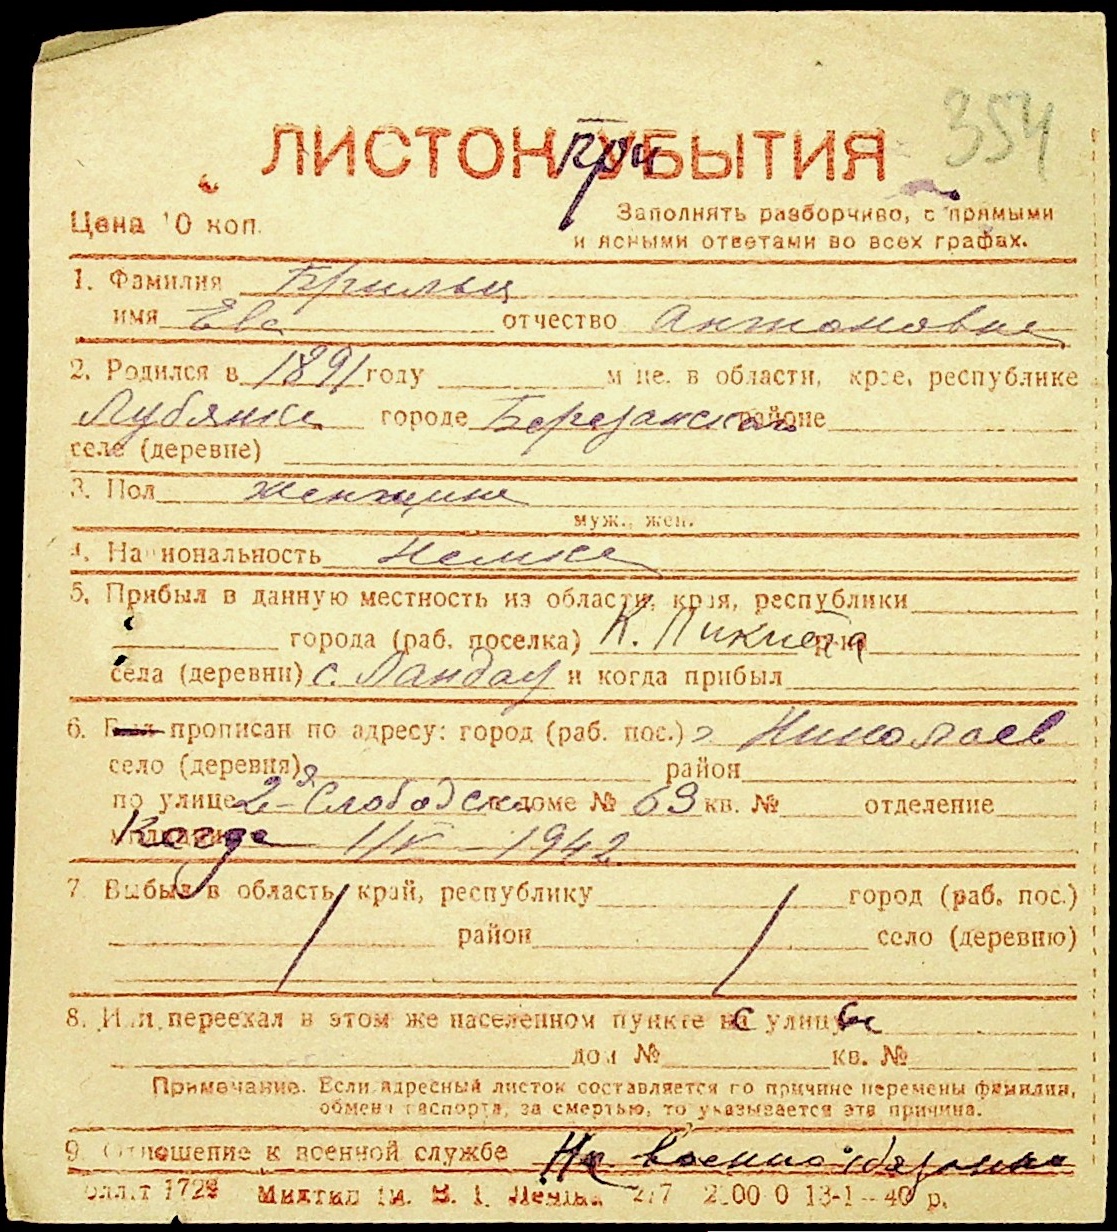 354
ЛИСТОК при УБЫТИЯ
Цена 10 коп.
Заполнять разборчиво, с прямыми
и ясными ответами во всех графах.
1. Фамилия Брильц
имя Ева отчество Антоновна
2. Родился в 1891 году м-це, в области, крае, республике
Лубянка городе Березанском районе
селе (деревне)
3. Пол женщина
муж., жен.
4. Национальность Немка
5. Прибыл в данную местность из области, края, республики
города (раб. поселка) р-на
села (деревни) с. Ландау и когда прибыл
6. прописан по адресу: город (раб. пос.) г Николаев
село (деревня) район
по улице 2-я Слободская доме № 63 кв. № отделение
Когда 1/V 1942
7. Выбыл в область, край, республику город (раб. пос.)
район село (деревню)
8. Или переехал в этом же населенном пункте с улицы
дом № кв. №
Примечание. Если адресный листок составляется по причине перемены фамилии,
обмена паспорта, за смертью, то указывается эта причина.
9. Отношение к военной службе Не военнообязанная
1729 им. В. И. Ленина 13-1-40 р.